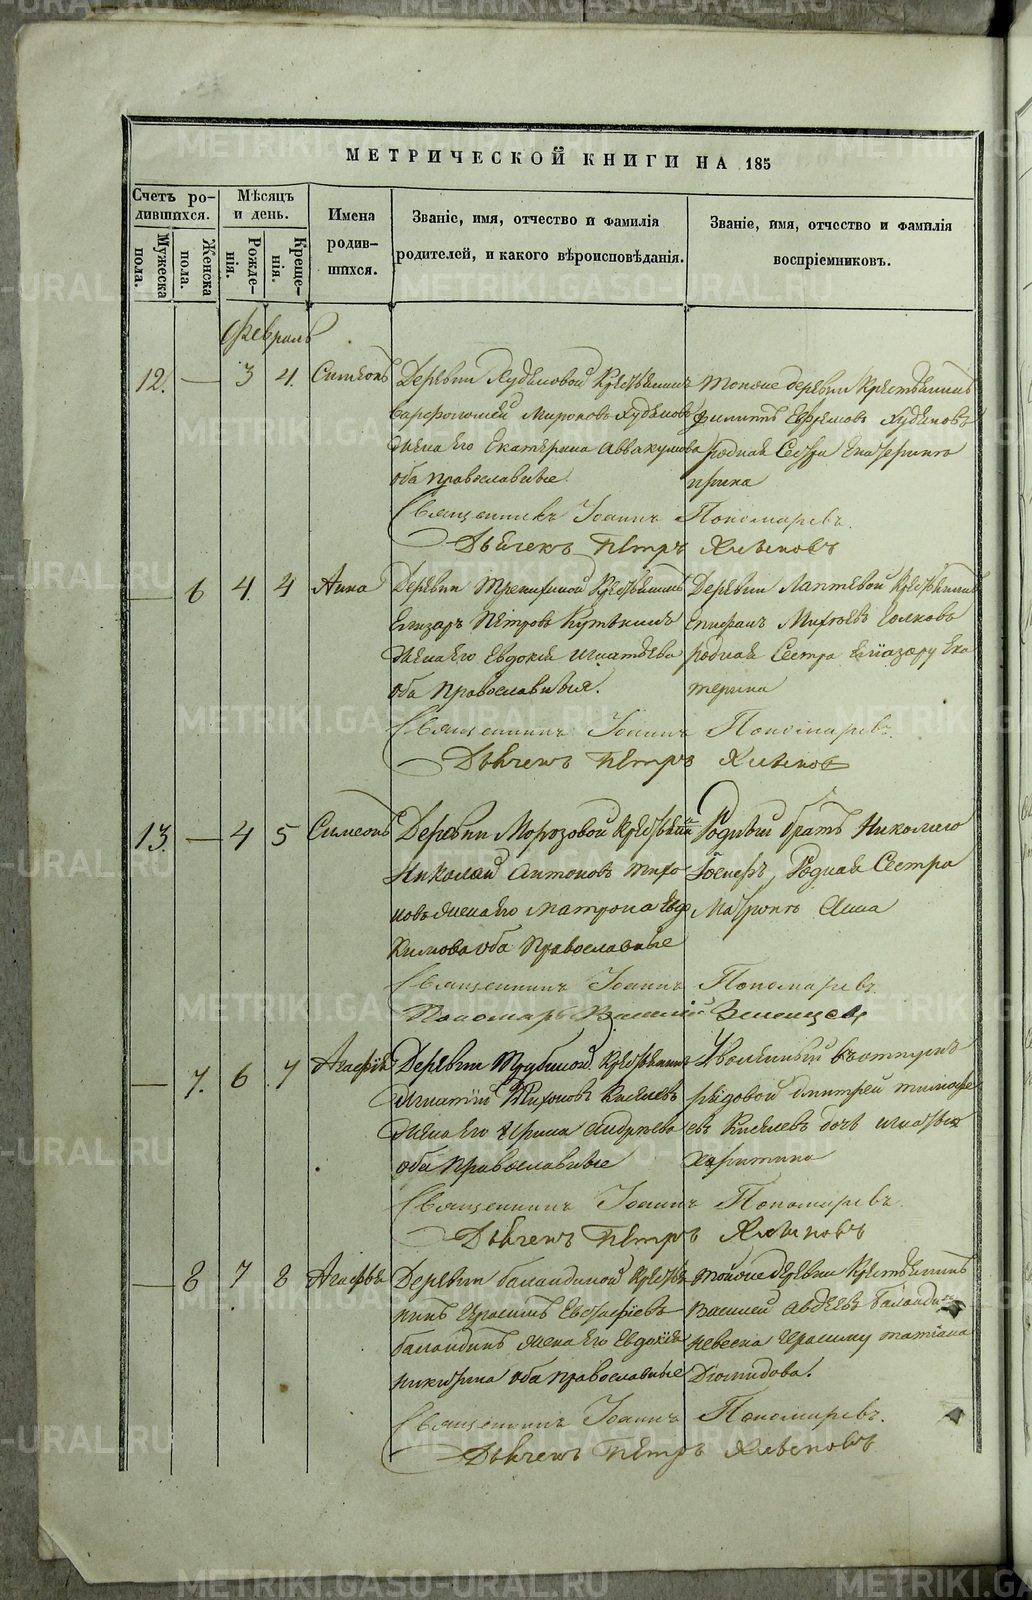 МЕТРИЧЕСКОЙ КНИГИ НА 185
Счетъ родившихся.
Мѣсяцъ и день.
Имена родившихся.
Званіе, имя, отчество и фамилія родителей, и какого вѣроисповѣданія.
Званіе, имя, отчество и фамилія воспріемниковъ.
Мужеска пола.
Женска пола.
Рожденія.
Крещенія.
Февраль
12. — 3 4. Симеонъ
Деревни Худяковой Крестьянинъ
Варфоломей Мироновъ Худяковъ
жена его Екатерина Аввакумова
оба православные.
тойже деревни Крестьянинъ
Филиппъ Ефремовъ Худяковъ
родная Сестра Екатерины
Ирина
Священникъ Іоаннъ Пономаревъ.
Дьячекъ Петръ
— 6 4. 4 Анна
Деревни Крестьянинъ
Елизаръ Петровъ
жена его Евдокія Игнатьева
оба православныя.
Деревни Лаптевой Крестьянинъ
Епифанъ
родная Сестра Елиазару Ека
терина
Священникъ Іоаннъ Пономаревъ.
Дьячекъ Петръ
13. — 4 5 Симеонъ
Деревни Морозовой Крестьянинъ
Николай Антоновъ Тихо
новъ жена его Матрона
оба Православные
Родный братъ Николаю
Іосифъ, Родная Сестра
Матроны Анна
Священникъ Іоаннъ Пономаревъ.
Пономарь Василій
— 7. 6 7 Агафія
Деревни Трубиной Крестьянинъ
Игнатій Тихоновъ Киселевъ
жена его Ирина Андреева
оба православные
Уволенный въ отпускъ
рядовой Димитрей Тимофе
евъ Киселевъ дочь Игнатья
Харитина
Священникъ Іоаннъ Пономаревъ.
Дьячекъ Петръ
— 8 7 8 Агафья
Деревни Баландиной Крестья
нинъ Герасимъ Евстафіевъ
Баландинъ жена его Евдокія
Никитина оба православные
тойже деревни Крестьянинъ
Василей Авдеевъ Баландинъ
невеска Герасиму Татіана
Діомидова.
Священникъ Іоаннъ Пономаревъ.
Дьячекъ Петръ
METRIKI.GASO-URAL.RU